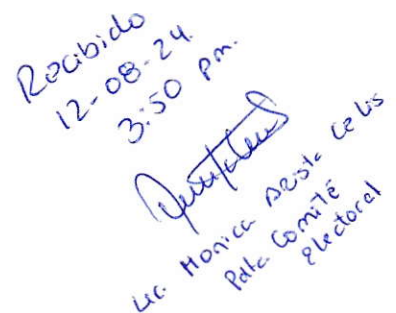 Recibido
12-08-24.
3:50 pm.
Lic. Monica Acosta Celis
Pdta. Comité
Electoral